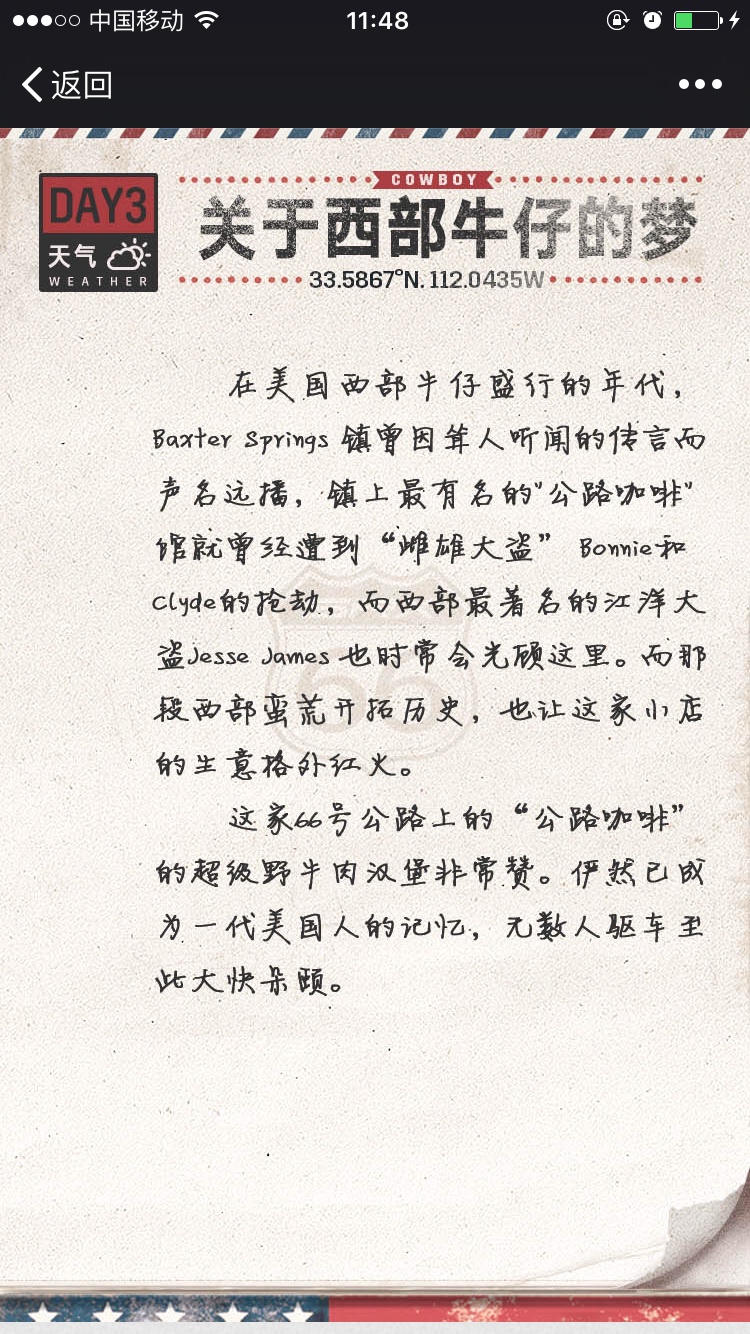 中国移动 11:48
返回
COWBOY
DAY3
关于西部牛仔的梦
天气
WEATHER
33.5867°N. 112.0435W
在美国西部牛仔盛行的年代，
Baxter Springs 镇曾因耸人听闻的传言而
声名远播，镇上最有名的"公路咖啡"
馆就曾经遭到“雌雄大盗” Bonnie和
Clyde的抢劫，而西部最著名的江洋大
盗Jesse James 也时常会光顾这里。而那
段西部蛮荒开拓历史，也让这家小店
的生意格外红火。
66
这家66号公路上的“公路咖啡”
的超级野牛肉汉堡非常赞。俨然已成
为一代美国人的记忆，无数人驱车至
此大快朵颐。